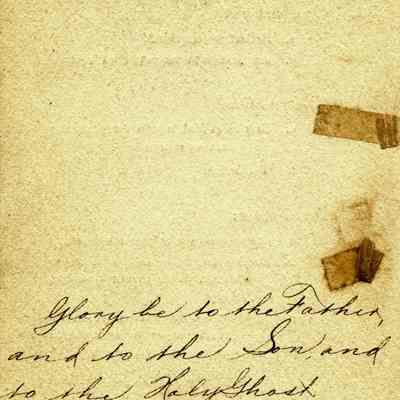 Glory be to the Father,
and to the Son, and
to the Holy Ghost